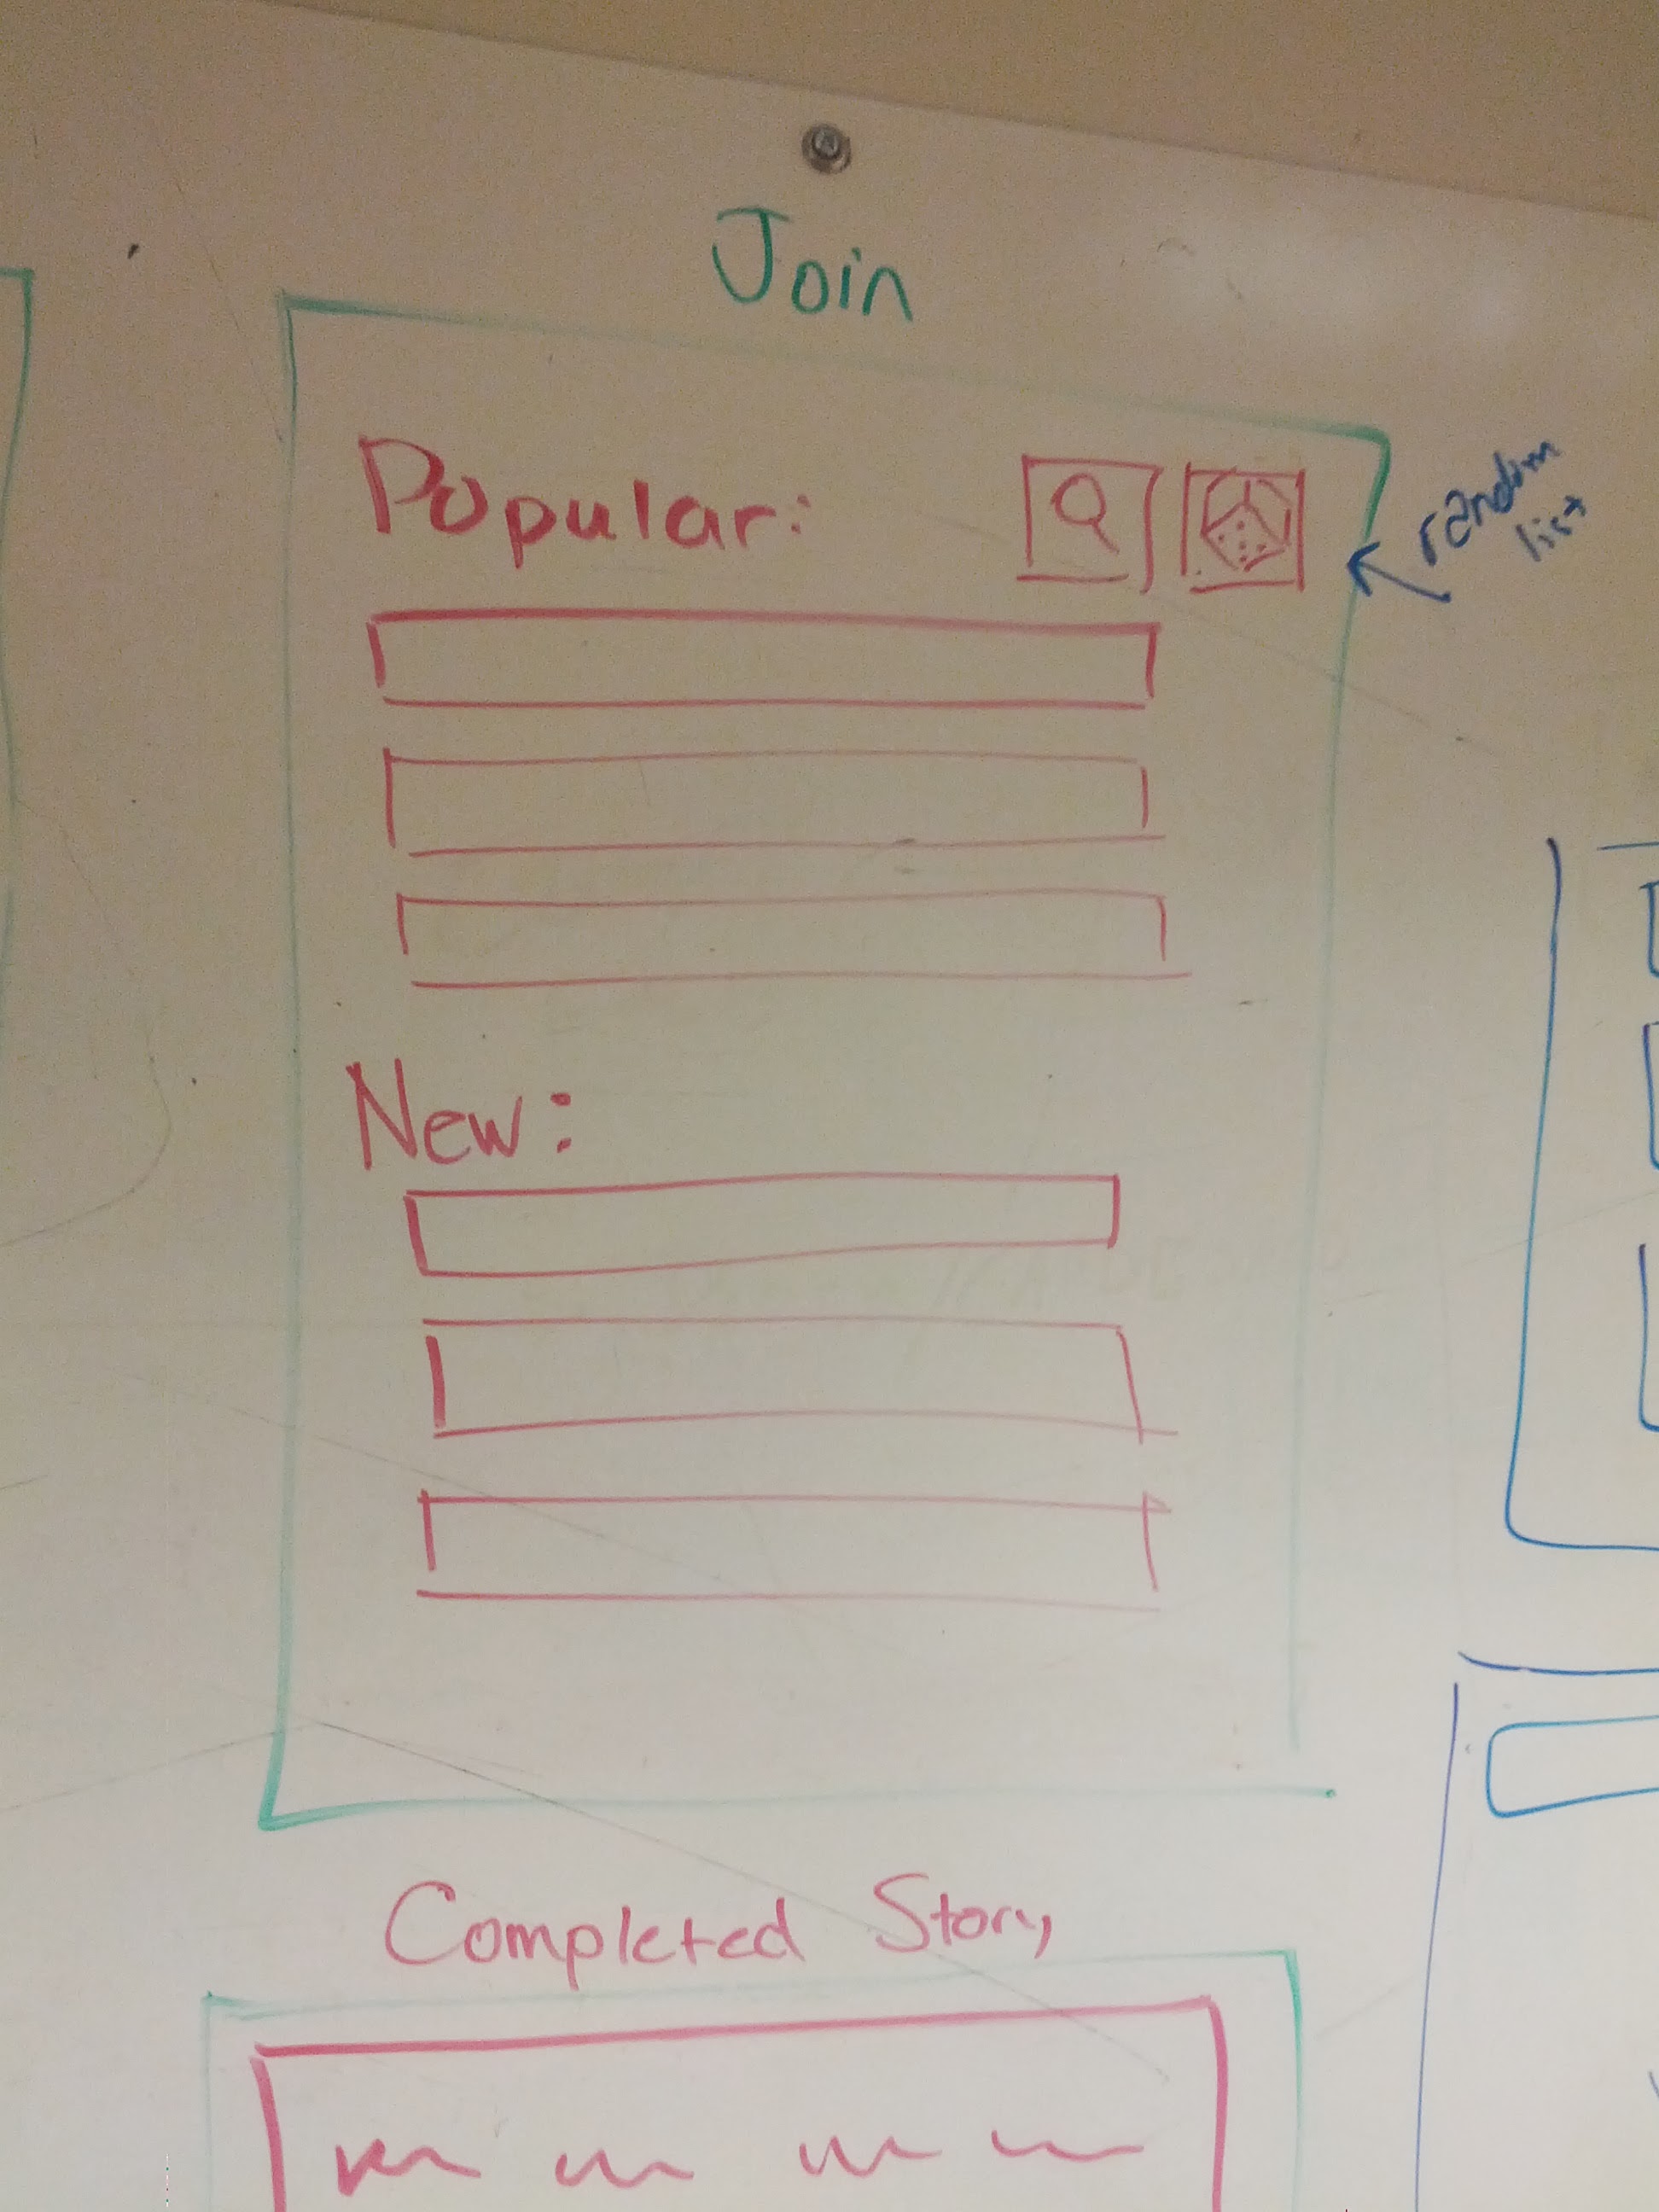 Join
Popular:
random
list
New:
Completed Story